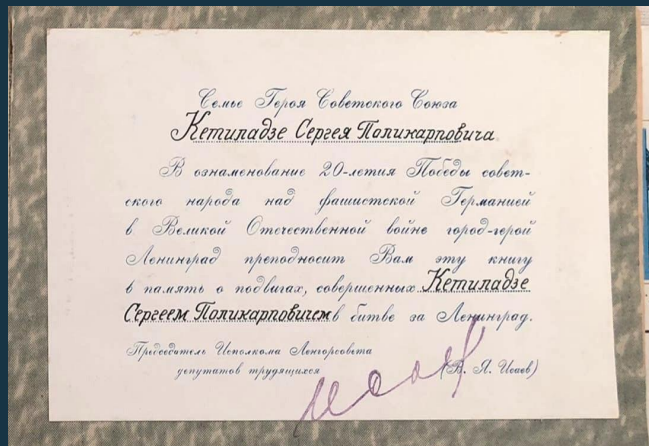 Семье Героя Советского Союза
Кетиладзе Сергея Поликарповича
В ознаменование 20-летия Победы совет-
ского народа над фашистской Германией
в Великой Отечественной войне город-герой
Ленинград преподносит Вам эту книгу
в память о подвигах, совершенных Кетиладзе
Сергеем Поликарповичем в битве за Ленинград.
Председатель Исполкома Ленгорсовета
депутатов трудящихся (В. Я. Исаев)
Исаев